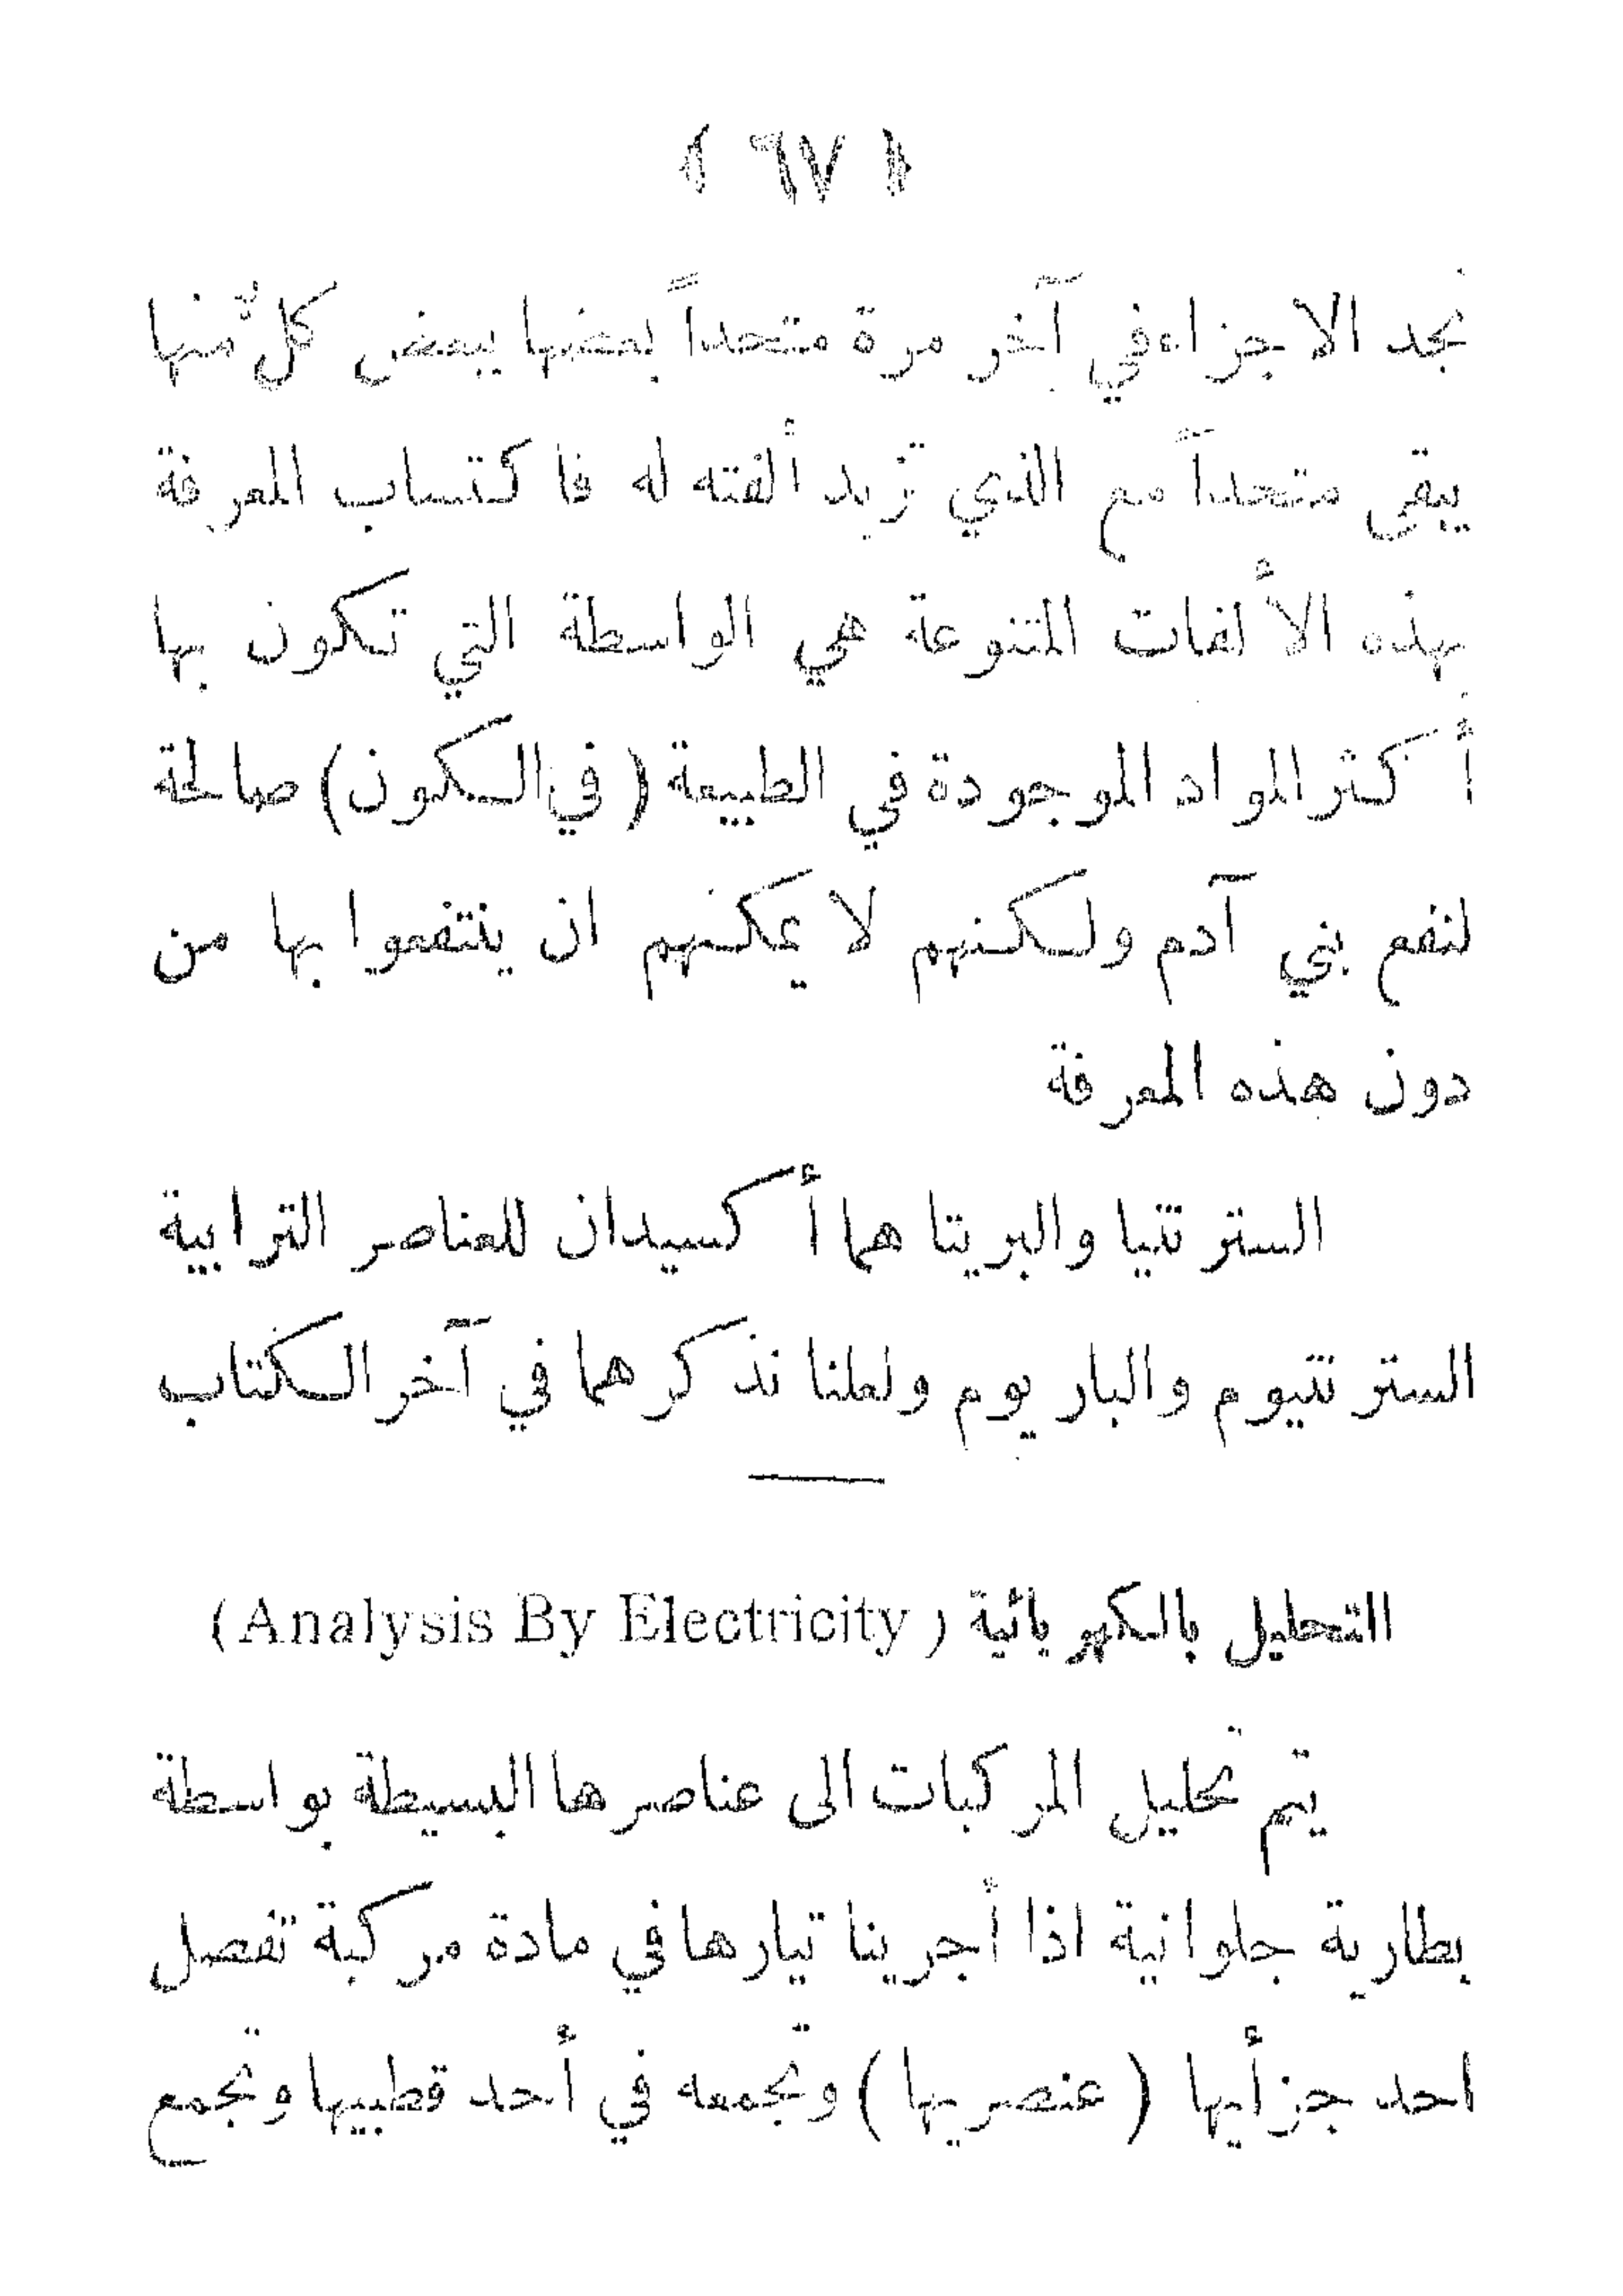 ﴿ ٦٧ ﴾
نجد الاجزاء في آخر مرة متحداً بعضها ببعض كلٌّ منها
يبقى متحداً مع الذي تزيد ألفته له فاكتساب المعرفة
بهذه الألفات المتنوعة هي الواسطة التي تكون بها
أكثر المواد الموجودة في الطبيعة (في الكون) صالحة
لنفع بني آدم ولكنهم لا يمكنهم ان ينتفعوا بها من
دون هذه المعرفة
السترنتيا والبريتا هما أكسيدان للعناصر الترابية
السترنتيوم والباريوم ولعلنا نذكرهما في آخر الكتاب
التحليل بالكهربائية (Analysis By Electricity)
يتم تحليل المركبات الى عناصرها البسيطة بواسطة
بطارية جلوانية اذا أجرينا تيارها في مادة مركبة تفصل
احد جزأيها (عنصريها) وتجمعه في أحد قطبيها وتجمع